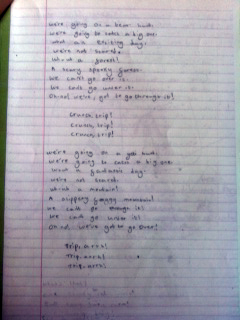 We're going on a bear hunt.
We're going to catch a big one.
What an exciting day.
We're not scared.
Uh-uh a forest!
A scary spooky forest.
We can't go over it.
We can't go under it.
Oh no! We've got to go through it!
Crunch, trip!
Crunch, trip!
Crunch, trip!
We're going on a hunt.
We're going to catch a big one.
What a fantastic day.
We're not scared.
Uh-uh a mountain!
A slippery mountain!
We can't go through it!
We can't go under it!
Oh no! We've got to go over!
Trip, arrh!
Trip, arrh!
Trip, arrh!